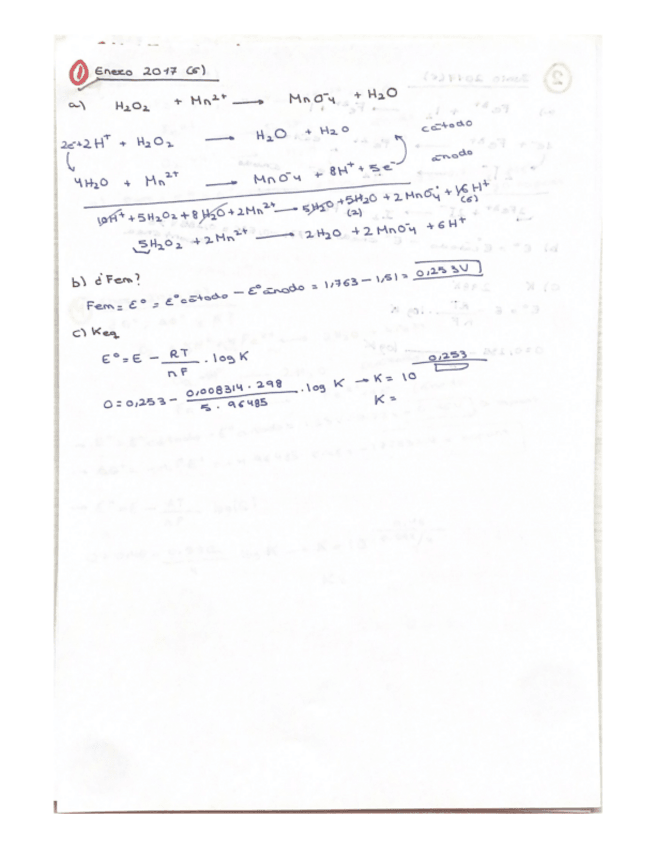 ① Enero 2017 (5)
a) H₂O₂ + Mn²⁺ → MnO⁻₄ + H₂O
2e⁻+2H⁺ + H₂O₂ → H₂O + H₂O cátodo
4H₂O + Mn²⁺ → MnO⁻₄ + 8H⁺ + 5e⁻ ánodo
10H⁺ + 5H₂O₂ + 8H₂O + 2Mn²⁺ → 5H₂O + 5H₂O + 2MnO⁻₄ + 16H⁺
(2) (6)
5H₂O₂ + 2Mn²⁺ → 2H₂O + 2MnO⁻₄ + 6H⁺
b) d´Fem?
Fem = ε° = ε°cátodo − ε°ánodo = 1,763 − 1,51 = 0,253V
c) Keq
E° = E − RT/nF · log K
0 = 0,253 − 0,008314 · 298 / 5 · 96485 · log K → K = 10^0,253/
K =
②